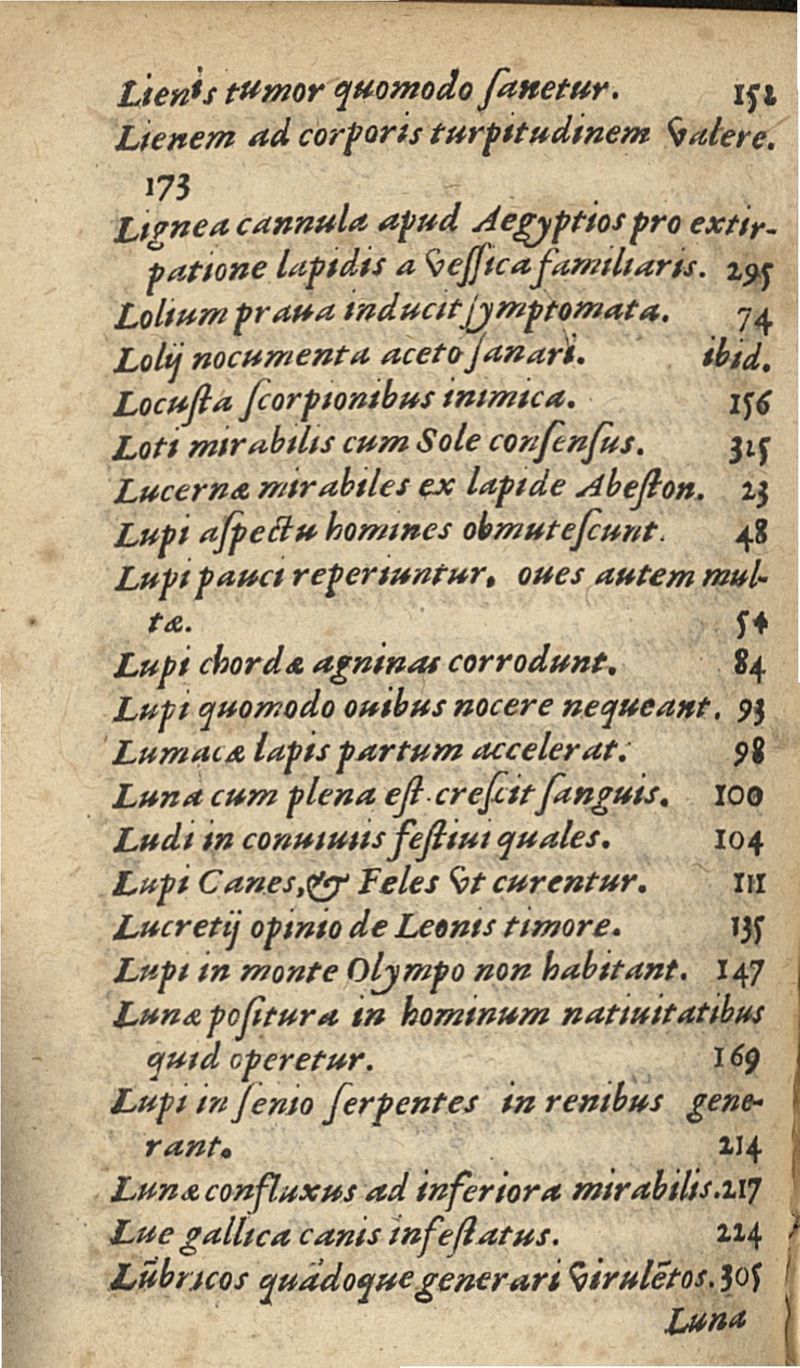 Lienis tumor quomodo ſanetur. 152
Lienem ad corporis turpitudinem valere.
173
Lignea cannula apud Aegyptios pro extir-
patione lapidis a veſſica familiaris. 295
Lolium praua inducit ſymptomata. 74
Lolij nocumenta aceto ſanari. ibid.
Locuſta ſcorpionibus inimica. 156
Loti mirabilis cum Sole conſenſus. 325
Lucernæ mirabiles ex lapide Abeſton. 23
Lupi aſpectu homines obmuteſcunt. 48
Lupi pauci reperiuntur. oues autem mul-
tæ. 54
Lupi chordæ agninas corrodunt. 84
Lupi quomodo ouibus nocere nequeant. 93
Lumacæ lapis partum accelerat. 98
Luna cum plena eſt creſcit ſanguis. 100
Ludi in conuiuiis feſtiui quales. 104
Lupi Canes, & Feles vt curentur. 111
Lucretij opinio de Leonis timore. 135
Lupi in monte Olympo non habitant. 147
Lunæ poſitura in hominum natiuitatibus
quid operetur. 169
Lupi in ſenio ſerpentes in renibus gene-
rant. 214
Lunæ confluxus ad inferiora mirabilis. 217
Lue gallica canis infeſtatus. 224
Lūbricos quādoque generari virulētos. 305
Luna